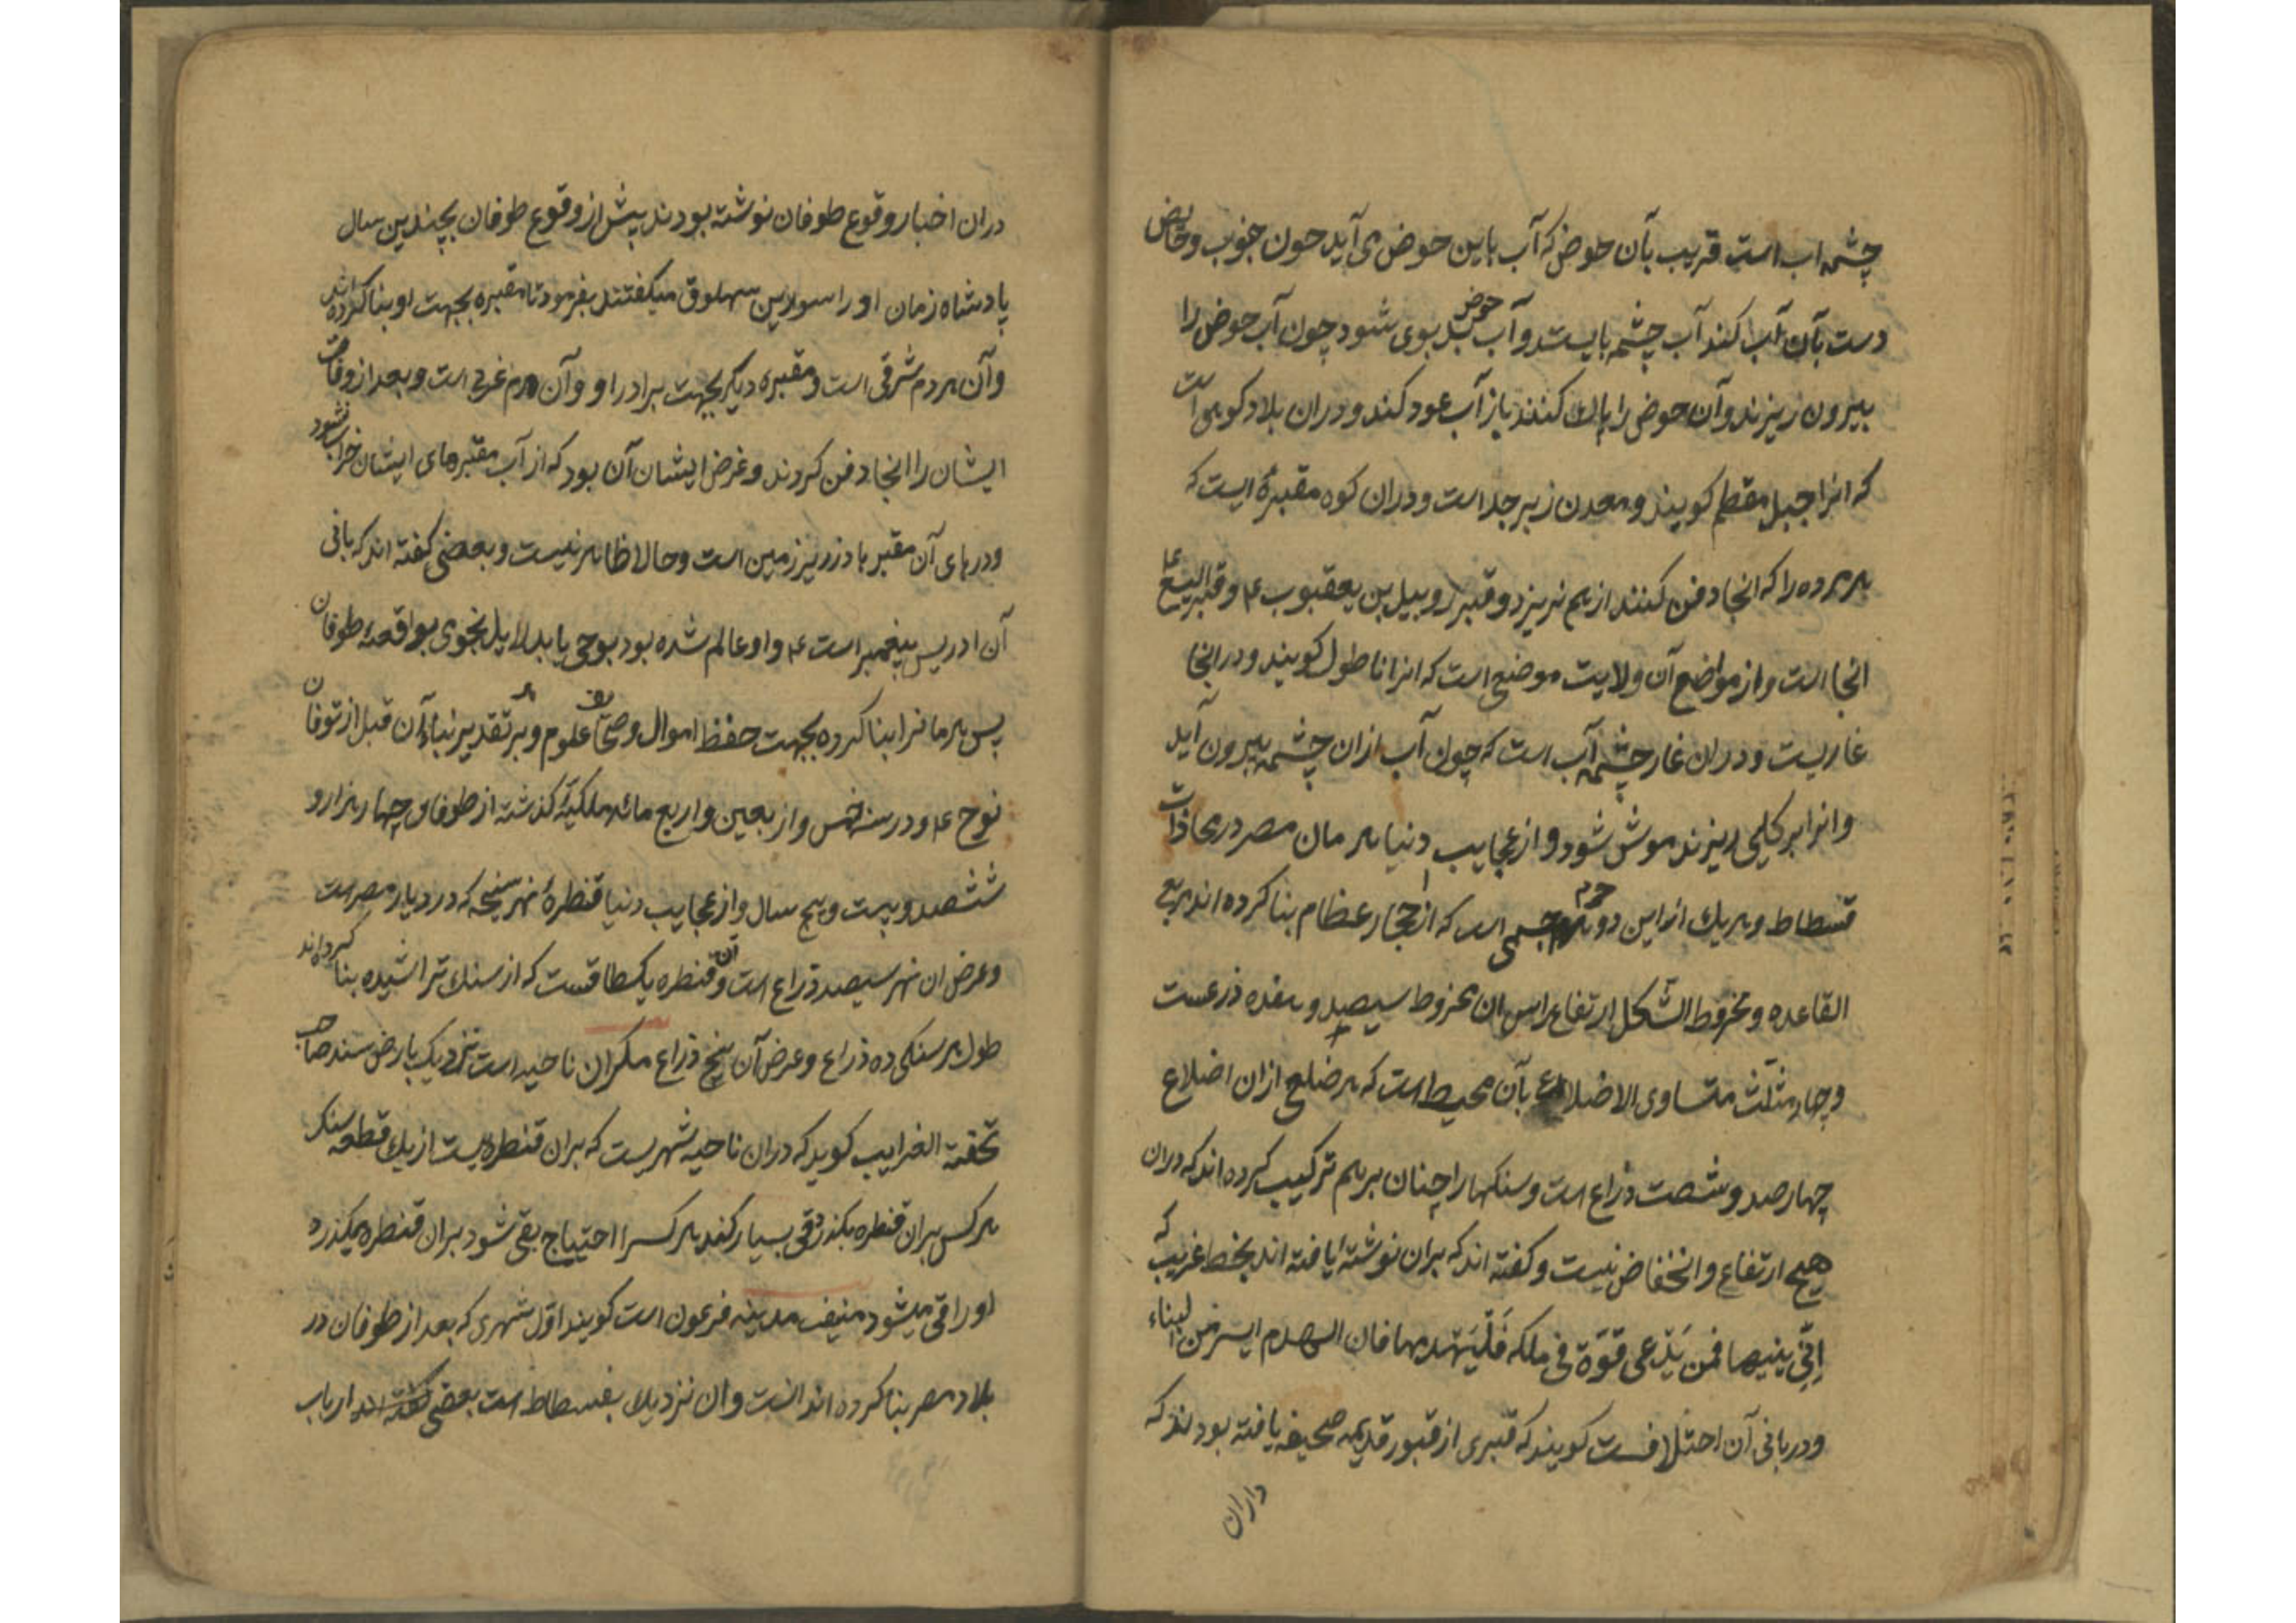 چشمه اب است قریب بآن حوض که آب باین حوض می آید چون جنوب و حایض
دست بآن آب کند آب چشمه بایستد و آب حوض بد بوی شود چون آب حوض را
بیرون ریزند و آن حوض را پاك کنند باز آب عود کند و دران بلاد کوهی است
که انرا جبل مقطم کویند و معدن زبرجد است و دران کوه مقبرۀ ایست که
هر مرده را که انجا دفن کنند از هم نریزد و قبر روبیل بن یعقوب ع و قبر الیسع ع
انجا است و از مواضع آن ولایت موضعی است که انرا ناطول کویند و در انجا
غاریست و دران غار چشمه آب است که چون آب ازان چشمه بیرون آید
و انرا بر کلیمی ریزند موش شود و از عجایب دنیا هرمان مصر در محاذات
فسطاط و هر یك از این دو هرم جسمی است که از احجار عظام بنا کرده اند مربع
القاعده و مخروط الشکل ارتفاع راس ان مخروط سیصد و هفده ذرعست
و چهار مثلث متساوی الاضلاع بآن محیط است که هر ضلع ازان اضلاع
چهارصد و شصت ذراع است و سنکها را چنان بر هم ترکیب کرده اند که دران
هیچ ارتفاع و انخفاض نیست و کفته اند که بران نوشته یافته اند بخط غریب که
اِنّی بنیتها فمن یَدّعی قوّة فی ملکه فَلْیَهْدمها فان الهدم ایسر من البناء
و در بانی آن اختلافست کویند که قبری از قبور قدیمه صحیفه یافته بودند که
داران
دران اخبار وقوع طوفان نوشته بودند پیش از وقوع طوفان بچندین سال
پادشاه زمان او را سورین سهلوق میکفتند بفرمود تا مقبره بجهت او بنا کرده اند
و آن هرم شرقی است و مقبره دیکر بجهت برادر او و آن هرم غربی است و بعد از وفات
ایشان را انجا دفن کردند و غرض ایشان آن بود که از آب مقبرهای ایشان خراب نشود
و درهای آن مقبرها در زیر زمین است و حالا ظاهر نیست و بعضی کفته اند که بانی
آن ادریس پیغمبر است ع و او عالم شده بود بوحی یا بدلایل نجومی بواقعه طوفان
پس هرمانرا بنا کرده بجهت حفظ اموال و صحایف علوم و بر تقدیر بناء آن قبل از توفان
نوح ع و در سنه خمس و اربعین و اربع مائه ملکیّه کذشته از طوفان چهار هزار و
ششصد و بیست و پنج سال و از عجایب دنیا قنطرۀ نهر سنجه که در دیار مصر است
و عرض ان نهر سیصد ذراع است و آن قنطره یکطاقست که از سنك تراشیده بنا کرده اند
طول هر سنکی ده ذراع و عرض آن پنج ذراع مکران ناحیه است نزدیک بارض سند صاحب
تحفة الغرایب کوید که دران ناحیه شهریست که بران قنطره ایست از یك قطعه سنك
هر کس بران قنطره بکذرد قی بسیار کند هر کسرا احتیاج بقی شود بران قنطره میکذرد
او را قی میشود منیف مدینه فرعون است کویند اوّل شهری که بعد از طوفان در
بلاد مصر بنا کرده اند انست و ان نزدیك بفسطاط است بعضی کفته اند ارباب